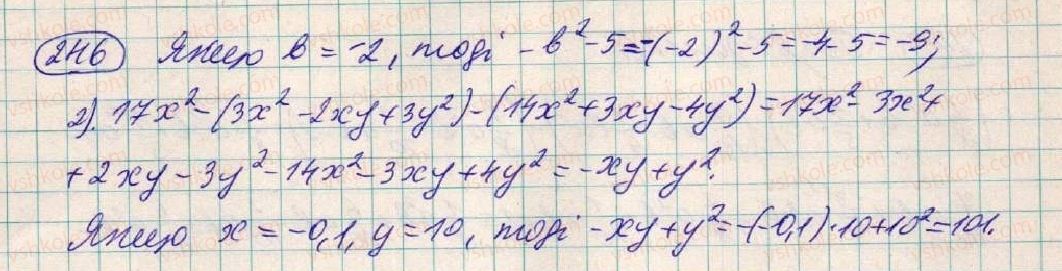 246 Якщо b = -2, тоді -b²-5 = -(-2)²-5 = -4-5 = -9;
2). 17x² - (3x² - 2xy + 3y²) - (14x² + 3xy - 4y²) = 17x² - 3x² +
+ 2xy - 3y² - 14x² - 3xy + 4y² = -xy + y².
Якщо x = -0,1, y = 10, тоді -xy + y² = -(-0,1)·10 + 10² = 101.